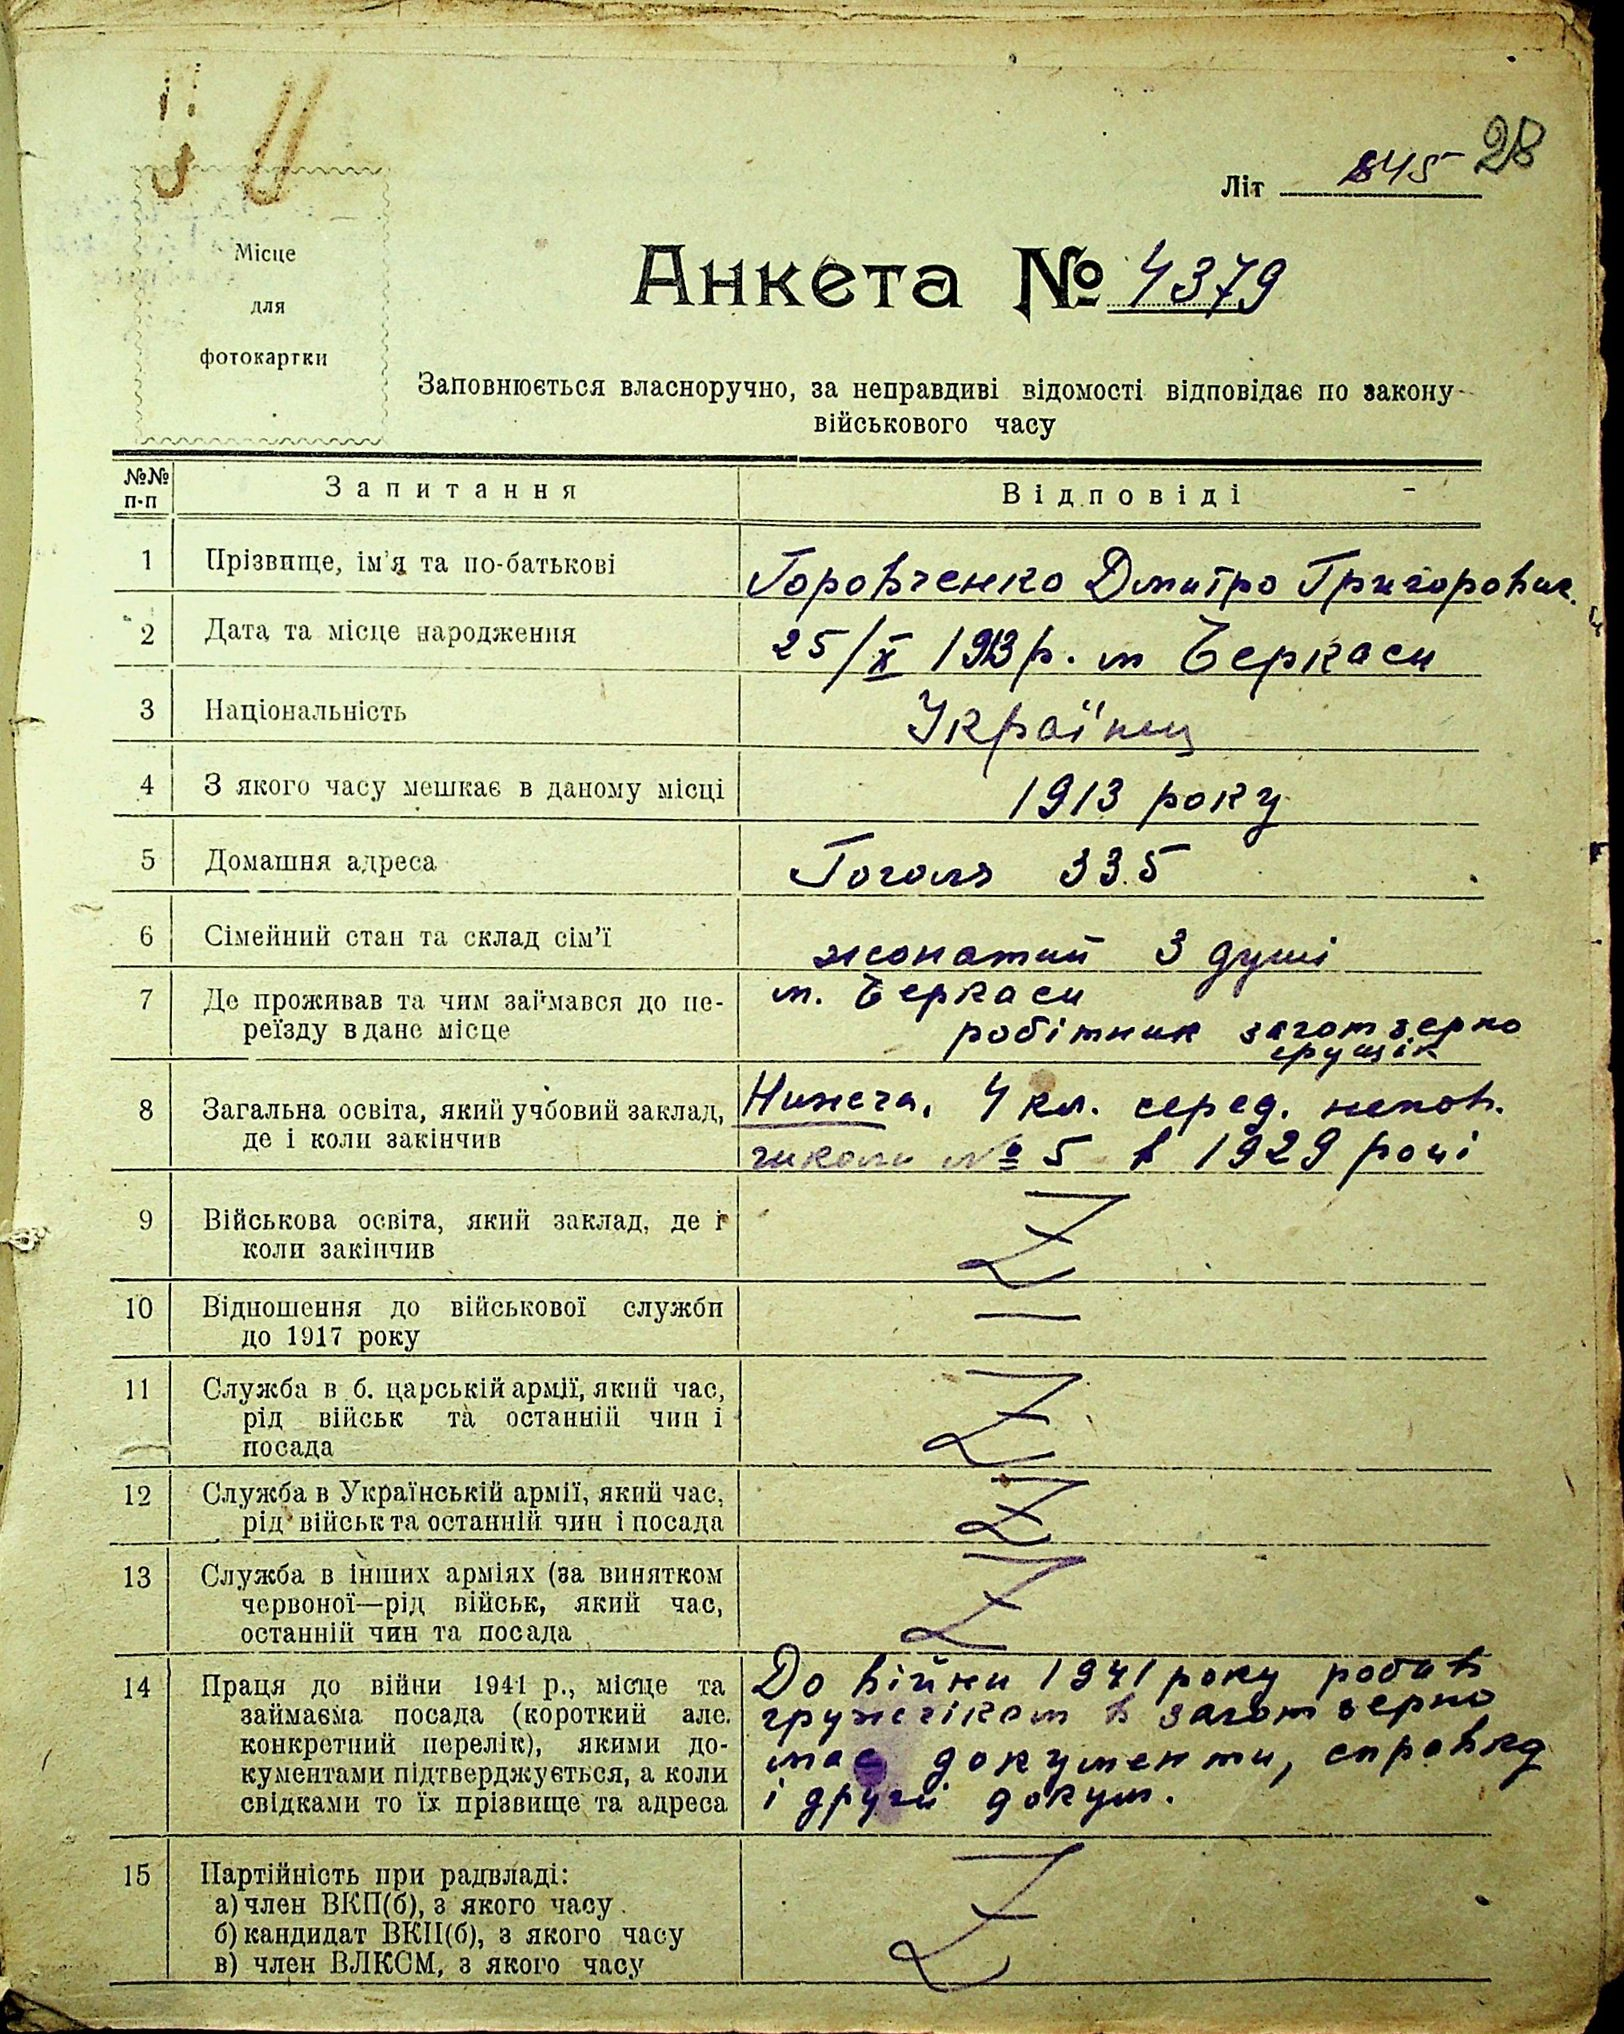 28
Літ 845
Місце
для
фотокартки
Анкета № 4379
Заповнюється власноручно, за неправдиві відомості відповідає по закону
військового часу
№№ п-п
Запитання
Відповіді
1 Прізвище, ім'я та по-батькові
Горовченко Дмитро Григорович.
2 Дата та місце народження
25/X 1913 р. м Черкаси
3 Національність
Українец
4 З якого часу мешкає в даному місці
1913 року
5 Домашня адреса
Гоголя 335
6 Сімейний стан та склад сім'ї
жонатий 3 душі
7 Де проживав та чим займався до пе-
реїзду в дане місце
м. Черкаси
робітник заготзерно
грущік
8 Загальна освіта, який учбовий заклад,
де і коли закінчив
Нижча, 4 кл. серед. непов.
школи № 5 в 1929 році
9 Військова освіта, який заклад, де і
коли закінчив
Z
10 Відношення до військової служби
до 1917 року
—
11 Служба в б. царській армії, який час,
рід військ та останній чин і
посада
Z
12 Служба в Українській армії, який час,
рід військ та останній чин і посада
Z
13 Служба в інших арміях (за винятком
червоної—рід військ, який час,
останній чин та посада
Z
14 Праця до війни 1941 р., місце та
займаєма посада (короткий але.
конкретний перелік), якими до-
кументами підтверджується, а коли
свідками то їх прізвище та адреса
До війни 1941 року робив
гружчіком в заготзерно
має документи, справку
і другій докум.
15 Партійність при радвладі:
а) член ВКП(б), з якого часу
б) кандидат ВКП(б), з якого часу
в) член ВЛКСМ, з якого часу
Z